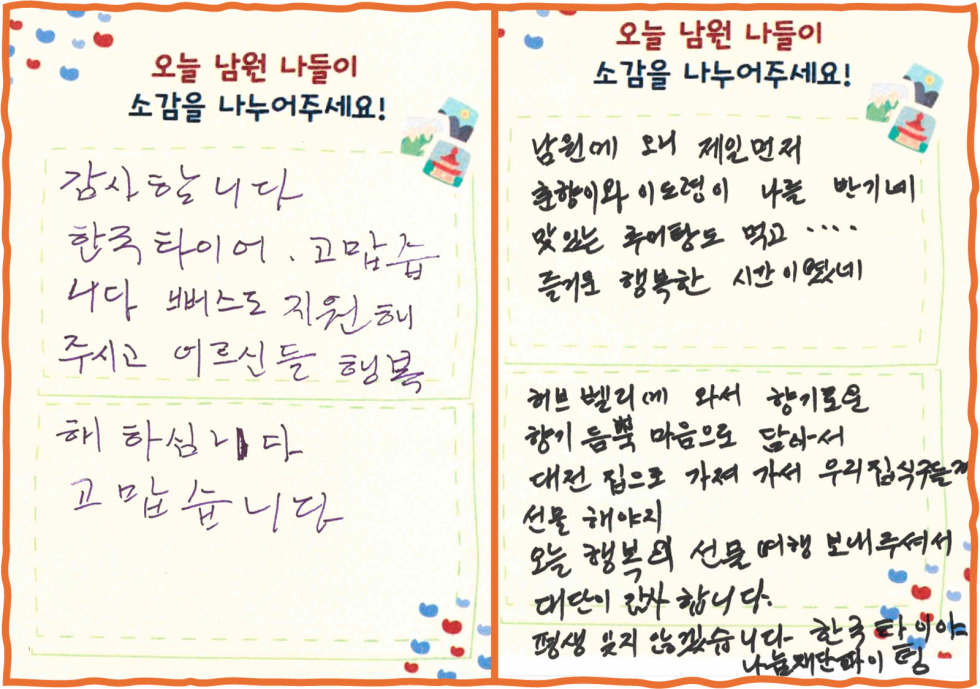 오늘 남원 나들이
소감을 나누어주세요!
감사합니다
한국타이어. 고맙습
니다 뻐스도 지원해
주시고 어르신들 행복
해 하십니다
고맙습니다
오늘 남원 나들이
소감을 나누어주세요!
남원에 오니 제일먼저
춘향이와 이도령이 나를 반기네
맛있는 추어탕도 먹고 ····
즐거운 행복한 시간이였네
허브벨리에 와서 향기로운
향기 듬뿍 마음으로 담아서
대전 집으로 가져 가서 우리집식구들게
선물 해야지
오늘 행복의 선물 여행 보내주셔서
대단이 감사 합니다.
평생 잊지 않겠습니다- 한국 타이야
나눔재단파이 팅